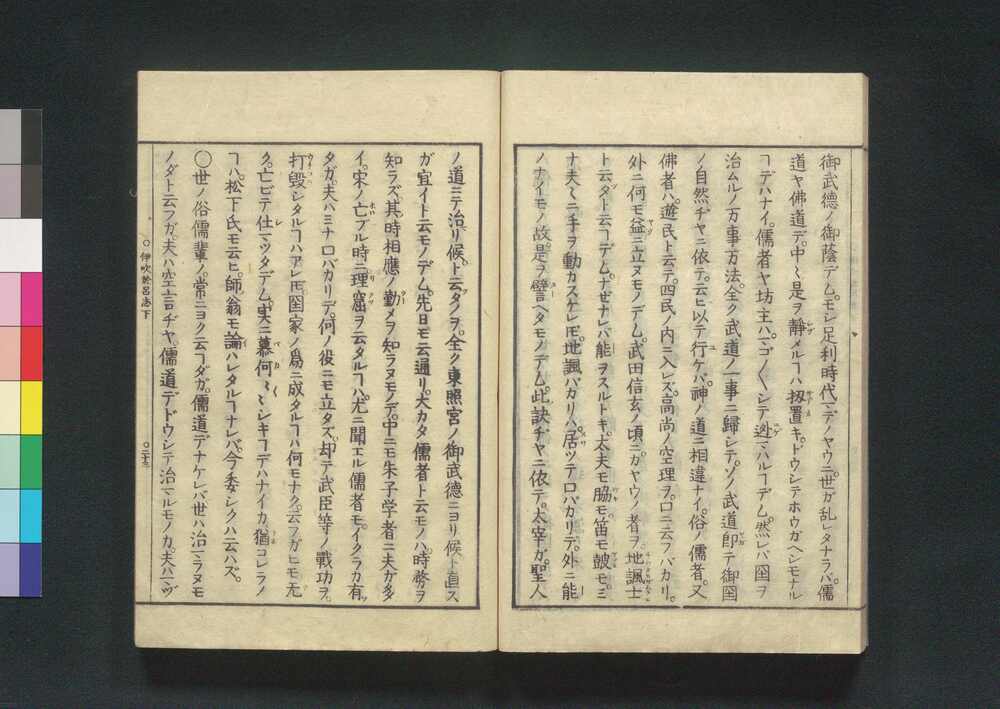 御武德ノ御蔭デム。モシ足利時代ニデノヤウニ。世ガ乱レタナラバ。儒
道ヤ佛道デ。中〻是ヲ靜メルヿハ扨置キ。ドウシテホウガヘシモナル
ヿデハナイ。儒者ヤ坊主ハ。マゴ〳〵シテ迯マハルヿデム。然レバ囶ヲ
治ムルノ万事方法。全ク武道ノ一事ニ歸シテ。ソノ武道即テ御囶
ノ自然ヂヤニ依テ。云ヒ以テ行ケバ。神ノ道ニ相違ナイ。俗ノ儒者。又
佛者ハ。遊民ト云テ。四民ノ内ニ入レズ。高尚ノ空理ヲ。口ニ云フバカリ。
外ニ何モ益ニ立ヌモノデム。武田信玄ノ頃ニ。カヤウノ者ヲ。地謳士
ト云タト云ヿデム。ナゼナレバ。能ヲスルトキ。太夫モ脇モ。笛モ皷モ。ミ
ナ夫〻ニ手ヲ動カスケレモ。地謳バカリハ。居ツテ口バカリデ。外ニ能
ノナイモノ故。是ヲ譬ヘタモノデム。此訣ヂヤニ依テ。太宰ガ。聖人
ノ道ニテ治リ候。ト云タノヲ。全ク東照宮ノ御武德ニヨリ候ト直ス
ガ宜イト云モノデム。先日モ云通リ。大カタ儒者ト云モノハ。時務ヲ
知ラズ。其時相應ノ勤メヲ知ラヌモノデ。中ニモ朱子学者ニ夫ガ多
イ。宋ノ亡ブル時ニ。理窟ヲ云タルヿハ。尤ニ聞エル儒者モ。イクラカ有
タガ。夫ハミナ口バカリデ。何ノ役ニモ立タズ。却テ武臣等ノ戰功ヲ。
打毀シタルヿハアレ𪜈。囶家ノ爲ニ成タルヿハ何モナク。云フガヒモ无
ク。亡ビテ仕マツタデム。実ニ慕何〻〻シキヿデハナイカ。猶コレラノ
ヿハ。松下氏モ云ヒ。師翁モ論ハレタルヿナレバ。今委シクハ云ハズ。
〇世ノ俗儒輩ノ常ニヨク云ヿダガ。儒道デナケレバ世ハ治マラヌモ
ノダト云フガ。夫ハ空言ヂヤ。儒道デドウシテ治マルモノカ。夫ハマヅ
〇伊吹於呂志下
〇二十三